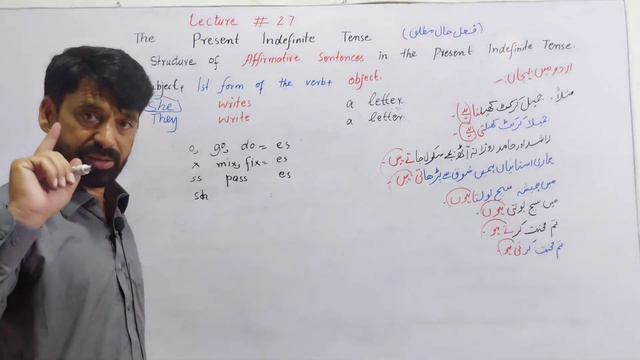 Lecture # 27
The Present Indefinite Tense (فعل حال مطلق)
Structure of Affirmative Sentences in the Present Indefinite Tense.
bject+ 1st form of the verb+ object.
She writes a letter.
They write a letter
o, go, do = es
x mix, fix = es
ss pass es
sh
اردو میں پہچان:۔
مثلاً۔ جمیل کرکٹ کھیلتا ہے۔
جمیلا کرکٹ کھیلتی ہے۔
راشد اور حامد روزانہ آٹھ بجے سکول جاتے ہیں۔
ہماری استانیاں ہمیں شوق سے پڑھاتی ہیں۔
میں ہمیشہ سچ بولتا ہوں۔
میں سچ بولتی ہوں۔
تم محنت کرتے ہو۔
تم محنت کرتی ہو۔